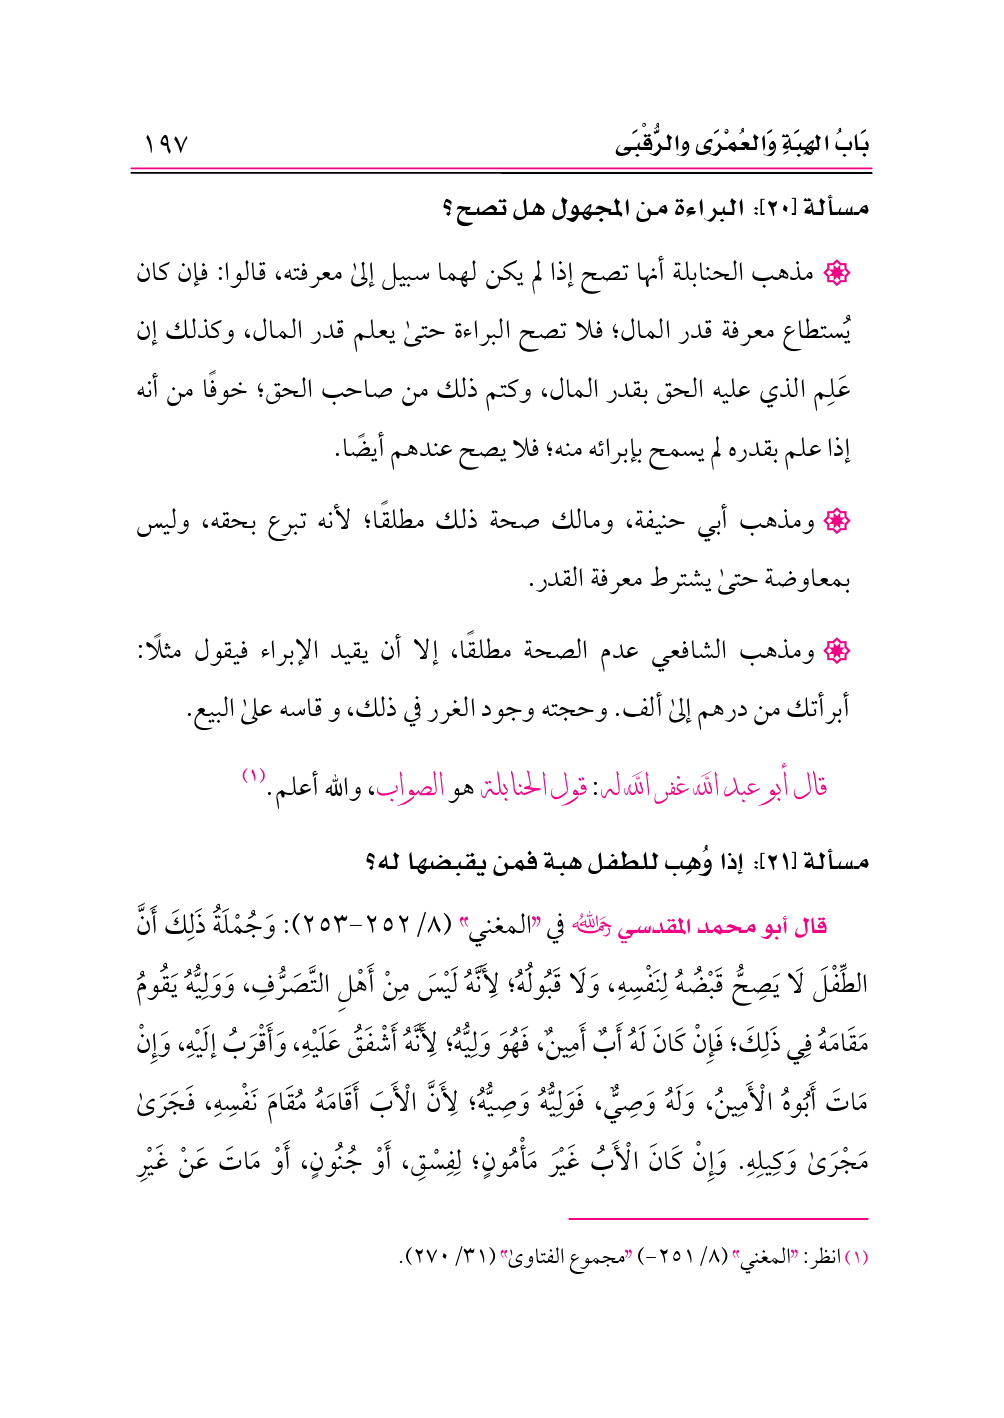 بَابُ الهِبَةِ وَالعُمْرَى والرُّقْبَى ١٩٧
مسألة [٢٠]: البراءة من المجهول هل تصح؟
مذهب الحنابلة أنها تصح إذا لم يكن لهما سبيل إلىٰ معرفته، قالوا: فإن كان
يُستطاع معرفة قدر المال؛ فلا تصح البراءة حتىٰ يعلم قدر المال، وكذلك إن
عَلِم الذي عليه الحق بقدر المال، وكتم ذلك من صاحب الحق؛ خوفًا من أنه
إذا علم بقدره لم يسمح بإبرائه منه؛ فلا يصح عندهم أيضًا.
ومذهب أبي حنيفة، ومالك صحة ذلك مطلقًا؛ لأنه تبرع بحقه، وليس
بمعاوضة حتىٰ يشترط معرفة القدر.
ومذهب الشافعي عدم الصحة مطلقًا، إلا أن يقيد الإبراء فيقول مثلًا:
أبرأتك من درهم إلىٰ ألف. وحجته وجود الغرر في ذلك، و قاسه علىٰ البيع.
قال أبو عبد الله غفر الله له: قول الحنابلة هو الصواب، والله أعلم.(١)
مسألة [٢١]: إذا وُهِب للطفل هبة فمن يقبضها له؟
قال أبو محمد المقدسي رحمه الله في "المغني" (٨/ ٢٥٢-٢٥٣): وَجُمْلَةُ ذَلِكَ أَنَّ
الطِّفْلَ لَا يَصِحُّ قَبْضُهُ لِنَفْسِهِ، وَلَا قَبُولُهُ؛ لِأَنَّهُ لَيْسَ مِنْ أَهْلِ التَّصَرُّفِ، وَوَلِيُّهُ يَقُومُ
مَقَامَهُ فِي ذَلِكَ؛ فَإِنْ كَانَ لَهُ أَبٌ أَمِينٌ، فَهُوَ وَلِيُّهُ؛ لِأَنَّهُ أَشْفَقُ عَلَيْهِ، وَأَقْرَبُ إلَيْهِ، وَإِنْ
مَاتَ أَبُوهُ الْأَمِينُ، وَلَهُ وَصِيٌّ، فَوَلِيُّهُ وَصِيُّهُ؛ لِأَنَّ الْأَبَ أَقَامَهُ مُقَامَ نَفْسِهِ، فَجَرَىٰ
مَجْرَىٰ وَكِيلِهِ. وَإِنْ كَانَ الْأَبُ غَيْرَ مَأْمُونٍ؛ لِفِسْقٍ، أَوْ جُنُونٍ، أَوْ مَاتَ عَنْ غَيْرِ
(١) انظر: "المغني" (٨/ ٢٥١-) "مجموع الفتاوىٰ" (٣١/ ٢٧٠).